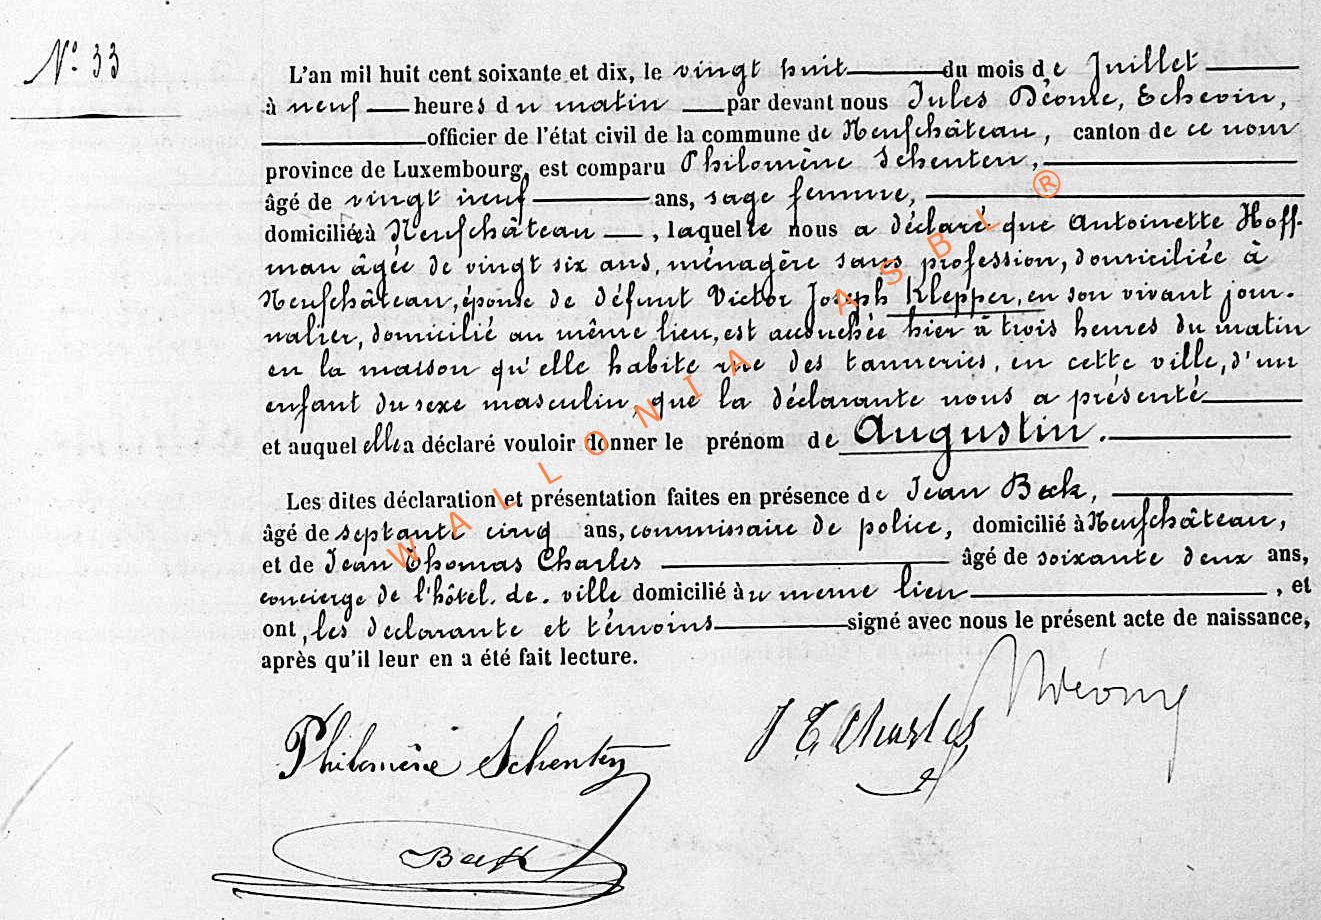 N° 33
L'an mil huit cent soixante et dix, le vingt huit du mois de Juillet
à neuf heures du matin par devant nous Jules Déome, Echevin,
officier de l'état civil de la commune de Neufchâteau, canton de ce nom
province de Luxembourg, est comparu Philomène Schenten,
âgé de vingt neuf ans, sage femme,
domiciliée à Neufchâteau, laquelle nous a déclaré que Antoinette Hoff-
man âgée de vingt six ans, ménagère sans profession, domiciliée à
Neufchâteau, épouse de défunt Victor Joseph Klepper, en son vivant jour-
nalier, domicilié au même lieu, est accouchée hier à trois heures du matin
en la maison qu'elle habite rue des tanneries, en cette ville, d'un
enfant du sexe masculin, que la déclarante nous a présenté
et auquel elle a déclaré vouloir donner le prénom de Augustin.
Les dites déclaration et présentation faites en présence de Jean Beck,
âgé de septante cinq ans, commissaire de police, domicilié à Neufchâteau,
et de Jean Thomas Charles âgé de soixante deux ans,
concierge de l'hôtel. de. ville domicilié au même lieu, et
ont, les déclarante et témoins signé avec nous le présent acte de naissance,
après qu'il leur en a été fait lecture.
WALLONIA ASBL ®
Philomène Schenten
J T Charles
Déome
Beck